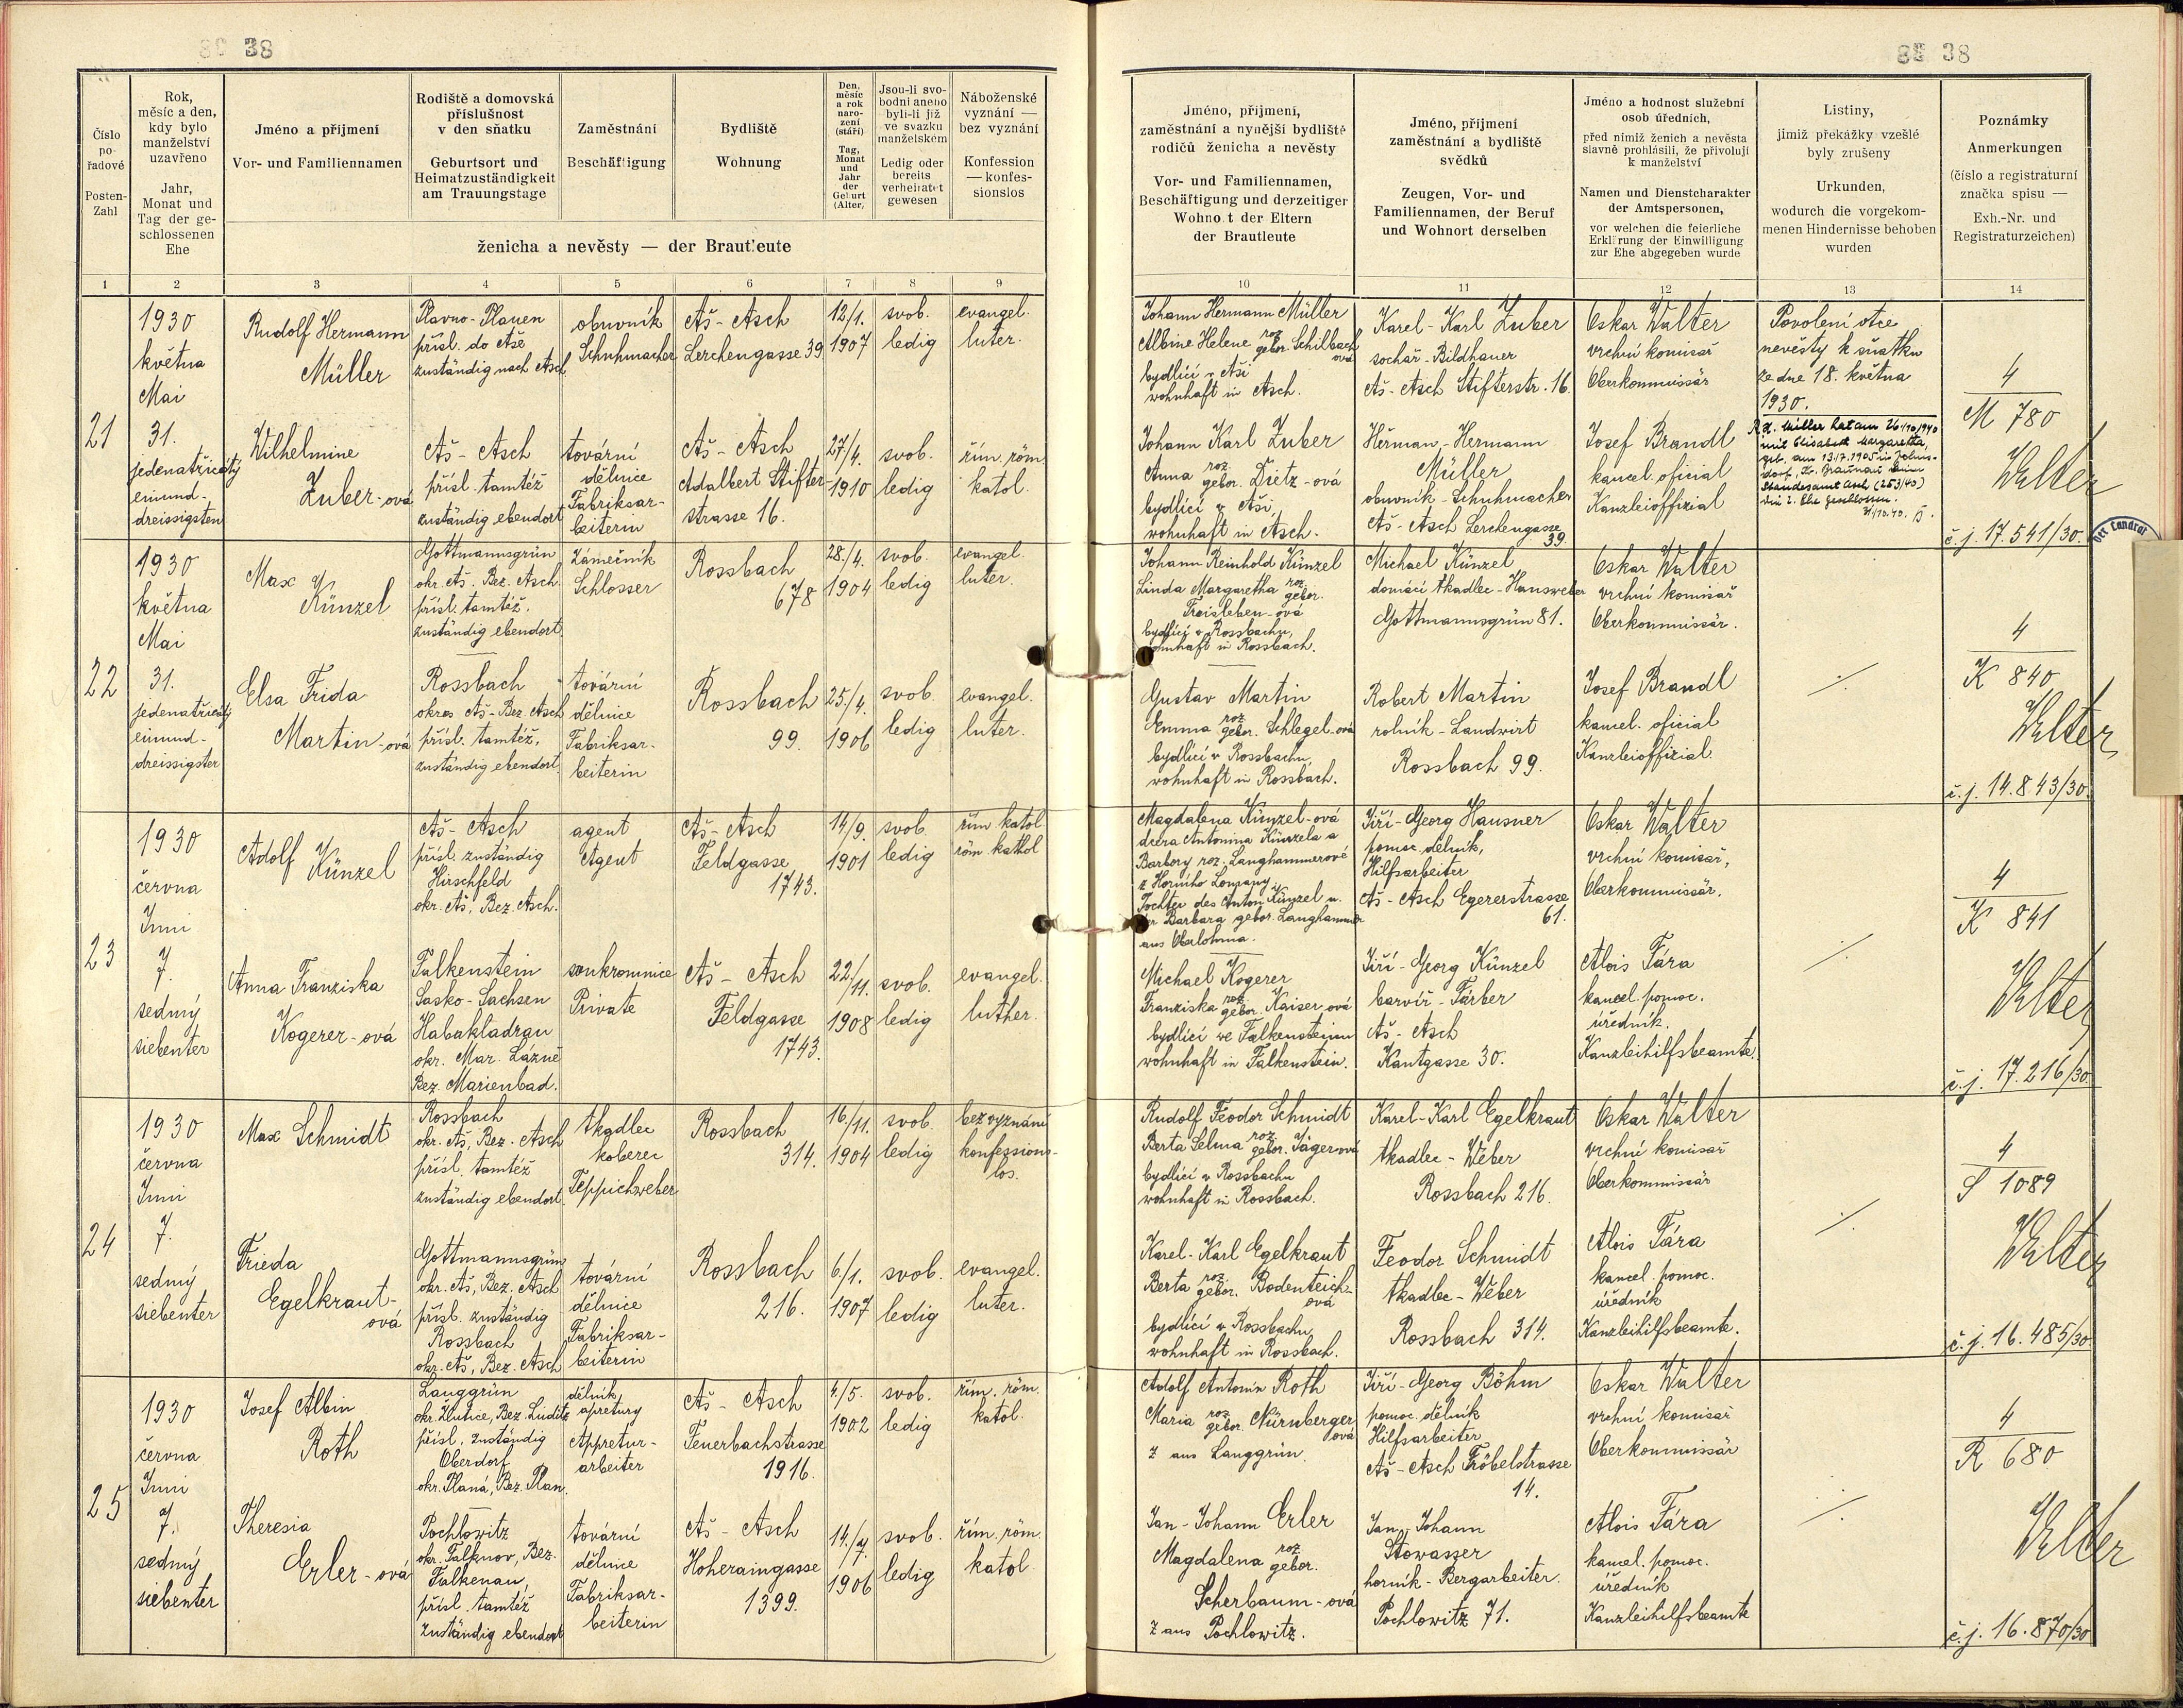 38
Číslo
po-
řadové
Posten-
Zahl
Rok,
měsíc a den,
kdy bylo
manželství
uzavřeno
Jahr,
Monat und
Tag der ge-
schlossenen
Ehe
Jméno a příjmení
Vor- und Familiennamen
Rodiště a domovská
příslušnost
v den sňatku
Geburtsort und
Heimatzuständigkeit
am Trauungstage
Zaměstnání
Beschäftigung
Bydliště
Wohnung
Den,
měsíc
a rok
naro-
zení
(stáří)
Tag,
Monat
und
Jahr
der
Geburt
(Alter)
Jsou-li svo-
bodni anebo
byli-li již
ve svazku
manželském
Ledig oder
bereits
verheiratet
gewesen
Náboženské
vyznání —
bez vyznání
Konfession
— konfes-
sionslos
ženicha a nevěsty — der Brautleute
1 2 3 4 5 6 7 8 9
21
1930
května
Mai
31.
jedenatřicátý
einund-
dreissigsten
Rudolf Hermann
Müller
Plavno - Plauen
přísl. do Aše
zuständig nach Asch
obuvník
Schuhmacher
Aš - Asch
Lerchengasse 39
12/1.
1907
svob.
ledig
evangel.
luter.
Wilhelmine
Zuber-ová
Aš - Asch
přísl. tamtéž
zuständig ebendort
tovární
dělnice
Fabriksar-
beiterin
Aš - Asch
Adalbert Stifter-
strasse 16.
27/4.
1910
svob.
ledig
řím. röm.
katol.
22
1930
května
Mai
31.
jedenatřicátý
einund-
dreissigster
Max
Künzel
Gottmannsgrün
okr. Aš. Bez. Asch.
přísl. tamtéž.
zuständig ebendort.
Zámečník
Schlosser
Rossbach
678
28./4.
1904
svob.
ledig
evangel.
luter.
Elsa Frida
Martin-ová
Rossbach
okres Aš - Bez. Asch
přísl. tamtéž,
zuständig ebendort.
tovární
dělnice
Fabriksar-
beiterin
Rossbach
99.
25/4.
1906
svob.
ledig
evangel.
luter.
23
1930
června
Juni
7.
sedmý
siebenter
Adolf
Künzel
Aš - Asch
přísl. zuständig
Hirschfeld
okr. Aš, Bez. Asch.
agent
Agent
Aš - Asch
Feldgasse
1743.
14/9.
1901
svob.
ledig
řím katol
röm kathol
Anna Franziska
Kogerer-ová
Falkenstein
Sasko - Sachsen
Habakladrau
okr. Mar. Lázně
Bez. Marienbad.
soukromnice
Private
Aš - Asch
Feldgasse
1743.
22./11.
1908
svob.
ledig
evangel.
luther.
24
1930
června
Juni
7.
sedmý
siebenter
Max Schmidt
Rossbach
okr. Aš, Bez. Asch
přísl. tamtéž
zuständig ebendort.
tkadlec
koberec
Teppichweber
Rossbach
314.
16/11.
1904
svob.
ledig
bez vyznání
konfessions-
los.
Frieda
Egelkraut-
ová
Gottmannsgrün
okr. Aš, Bez. Asch
přísl. zuständig
Rossbach
okr. Aš, Bez. Asch
tovární
dělnice
Fabriksar-
beiterin
Rossbach
216.
6/1.
1907
svob.
ledig
evangel.
luter.
25
1930
června
Juni
7.
sedmý
siebenter
Josef Albin
Roth
Langgrün
okr. Žlutice, Bez. Luditz
přísl. zuständig
Oberdorf
okr. Planá, Bez. Plan.
dělník
apretury
Appretur-
arbeiter
Aš - Asch
Feuerbachstrasse
1916.
4./5.
1902
svob.
ledig
řím. röm.
katol.
Theresia
Erler-ová
Pochlowitz
okr. Falknov, Bez.
Falkenau,
přísl. tamtéž
zuständig ebendort
tovární
dělnice
Fabriksar-
beiterin
Aš - Asch
Hoheraingasse
1399.
14./7.
1906
svob.
ledig
řím. röm.
katol.
38
Jméno, příjmení,
zaměstnání a nynější bydliště
rodičů ženicha a nevěsty
Vor- und Familiennamen,
Beschäftigung und derzeitiger
Wohnort der Eltern
der Brautleute
Jméno, příjmení
zaměstnání a bydliště
svědků
Zeugen, Vor- und
Familiennamen, der Beruf
und Wohnort derselben
Jméno a hodnost služební
osob úředních,
před nimiž ženich a nevěsta
slavně prohlásili, že přivolují
k manželství
Namen und Dienstcharakter
der Amtspersonen,
vor welchen die feierliche
Erklärung der Einwilligung
zur Ehe abgegeben wurde
Listiny,
jimiž překážky vzešlé
byly zrušeny
Urkunden,
wodurch die vorgekom-
menen Hindernisse behoben
wurden
Poznámky
Anmerkungen
(číslo a registraturní
značka spisu —
Exh.-Nr. und
Registraturzeichen)
10 11 12 13 14
Johann Hermann Müller
Albine Helene roz. gebor. Schilbach
ová
bydlící v Aši
wohnhaft in Asch.
Karel - Karl Zuber
sochař - Bildhauer
Aš - Asch Stifterstr. 16.
Oskar Walter
vrchní komisař
Oberkommissär
Povolení otce
nevěsty k sňatku
ze dne 18. května
1930.
R. H. Müller hat am 26/10/1940
mit Elisabeth Margaretha
geb. am 13.17.1905 in
Standesamt Asch (253/40)
die 2. Ehe geschlossen.
31/10.40.
4
M 780
Walter
č.j. 17.541/30.
Der Landrat
Johann Karl Zuber
Anna roz. gebor. Dietz-ová
bydlící v Aši,
wohnhaft in Asch.
Heřman - Hermann
Müller
obuvník - Schuhmacher
Aš - Asch Lerchengasse
39.
Josef Brandl
kancel. oficial
Kanzleioffizial
Johann Reinhold Künzel
Linda Margaretha roz. gebor.
Froisleben-ová
bydlící v Rossbachu,
wohnhaft in Rossbach.
Michael Künzel
domácí tkadlec - Hausweber
Gottmannsgrün 81.
Oskar Walter
vrchní komisař
Oberkommissär.
4
K 840
Walter
č.j. 14.843/30.
Gustav Martin
Emma roz. gebor. Schlegel-ová
bydlící v Rossbachu,
wohnhaft in Rossbach.
Robert Martin
rolník - Landwirt
Rossbach 99.
Josef Brandl
kancel. oficial
Kanzleioffizial.
Magdalena Künzel-ová
dcera Antonína Künzela a
Barbory roz. Langhammerové
z Horního Lomany.
Tochter des Anton Künzel u.
der Barbara gebor. Langhammer
aus Oberlohma.
Jiří - Georg Hausner
pomoc. dělník,
Hilfsarbeiter
Aš - Asch Egererstrasse
61.
Oskar Walter
vrchní komisař,
Oberkommissär.
4
K 841
Walter
č.j. 17.216/30
Michael Kogerer
Franziska roz. gebor. Kaiser-ová
bydlící ve Falkensteinu
wohnhaft in Falkenstein.
Jiří - Georg Künzel
barvíř - Färber
Aš - Asch
Kantgasse 30.
Alois Fára
kancel. pomoc.
úředník.
Kanzleihilfsbeamte.
Rudolf Feodor Schmidt
Berta Selma roz. gebor. Jägerová
bydlící v Rossbachu
wohnhaft in Rossbach.
Karel - Karl Egelkraut
tkadlec - Weber
Rossbach 216.
Oskar Walter
vrchní komisař
Oberkommissär
4
S 1089
Walter
č.j. 16.485/30
Karel - Karl Egelkraut
Berta roz. gebor. Bodenteich-
ová
bydlící v Rossbachu,
wohnhaft in Rossbach.
Feodor Schmidt
tkadlec - Weber
Rossbach 314.
Alois Fára
kancel. pomoc.
úředník
Kanzleihilfsbeamte.
Adolf Antonín Roth
Maria roz. gebor. Nürnberger
ová
z aus Langgrün.
Jiří - Georg Böhm
pomoc. dělník
Hilfsarbeiter
Aš - Asch Fröbelstrasse
14.
Oskar Walter
vrchní komisař
Oberkommissär
4
R 680
Walter
č.j. 16.870/30
Jan - Johann Erler
Magdalena roz. gebor.
Scherbaum-ová
z aus Pochlowitz.
Jan - Johann
Stowasser
horník - Bergarbeiter.
Pochlowitz 71.
Alois Fára
kancel. pomoc.
úředník
Kanzleihilfsbeamte